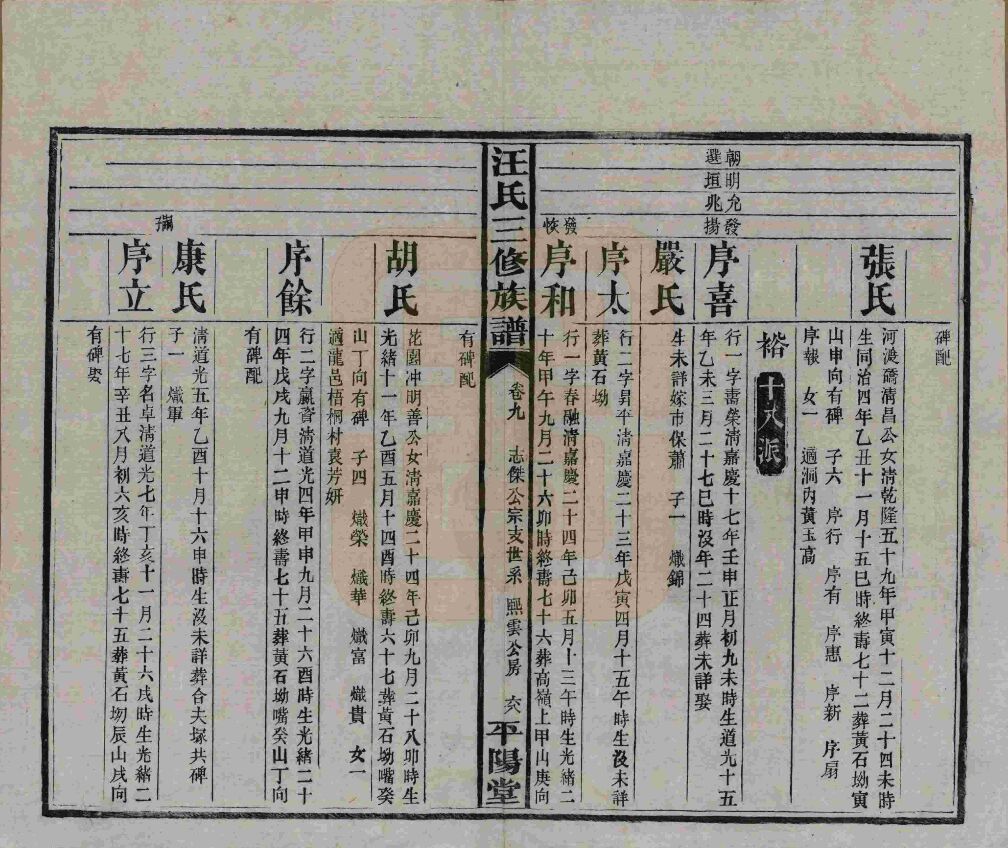 碑配
張氏
河渡礄清昌公女清乾隆五十九年甲寅十二月二十四未時
生同治四年乙丑十一月十五巳時終壽七十二葬黃石坳寅
山申向有碑 子六 序行 序有 序惠 序新 序扇
序報 女一 適洞內黃玉高
裕 十八派
朝明允發
選垣兆揚
序喜
行一字壽榮清嘉慶十七年壬申正月初九未時生道光十五
年乙未三月二十七巳時沒年二十四葬未詳娶
嚴氏
生未詳嫁市保蕭 子一 熾錦
序太
行二字昇平清嘉慶二十三年戊寅四月十五午時生沒未詳
葬黃石坳
發恢
序和
行一字春融清嘉慶二十四年己卯五月十三午時生光緒二
十年甲午九月二十六卯時終壽七十六葬高嶺上甲山庚向
汪氏三修族譜
卷九 志傑公宗支世系 熙雲公房
平陽堂
有碑配
胡氏
花園冲明善公女清嘉慶二十四年己卯九月二十八卯時生
光緒十一年乙酉五月十四酉時終壽六十七葬黃石坳嘴癸
山丁向有碑 子四 熾榮 熾華 熾富 熾貴 女一
適龍邑梧桐村袁芳妍
序餘
行二字贏資清道光四年甲申九月二十六酉時生光緒二十
四年戊戌九月十二申時終壽七十五葬黃石坳嘴癸山丁向
有碑配
康氏
清道光五年乙酉十月十六申時生沒未詳葬合夫塚共碑
子一 熾軍
序立
行三字名卓清道光七年丁亥十一月二十六戌時生光緒二
十七年辛丑八月初六亥時終壽七十五葬黃石坳辰山戌向
有碑娶